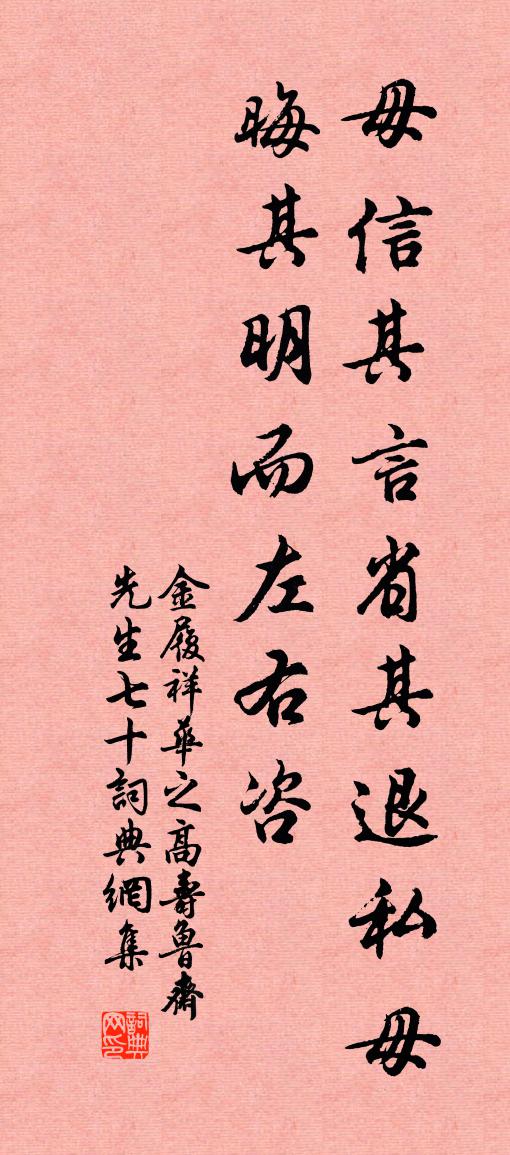 毋信其言省其退私毋
晦其明而左右咨
金履祥華之高壽魯齋
先生七十詞典網集
詞典
网印